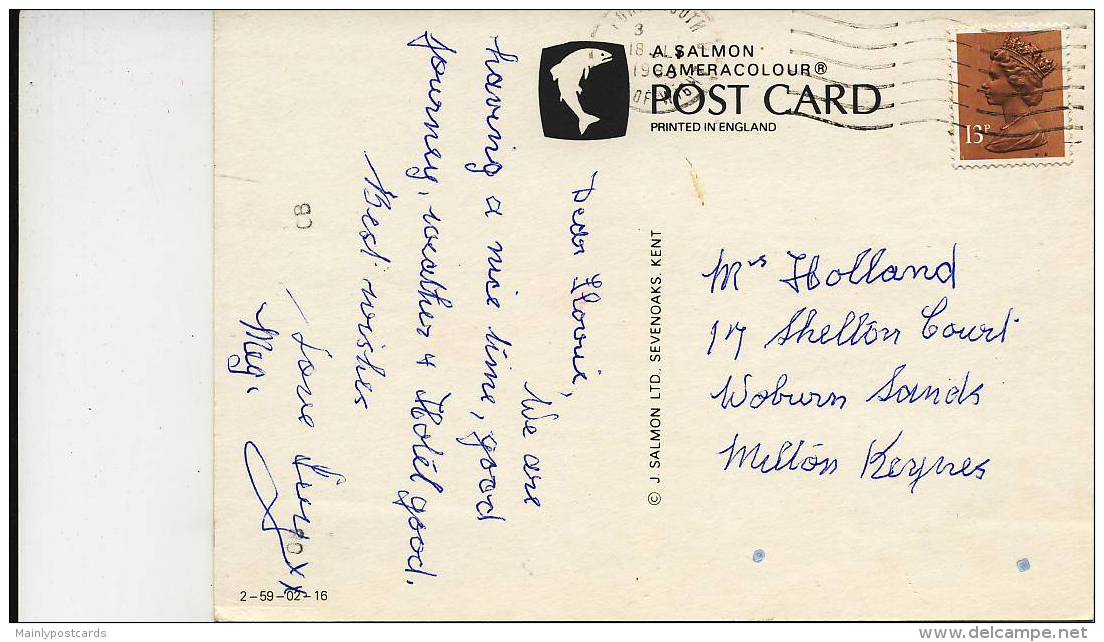 A SALMON
CAMERACOLOUR®
POST CARD
PRINTED IN ENGLAND
13P
Dear Flovie,
We are
having a nice time, good
journey, weather & Hotel good.
Best wishes
Love
xx
Meg.
© J. SALMON LTD., SEVENOAKS, KENT
Mrs Holland
17 Shelton Court
Woburn Sands
Milton Keynes
CB
2-59-02-16
Mainlypostcards
delcampe.net